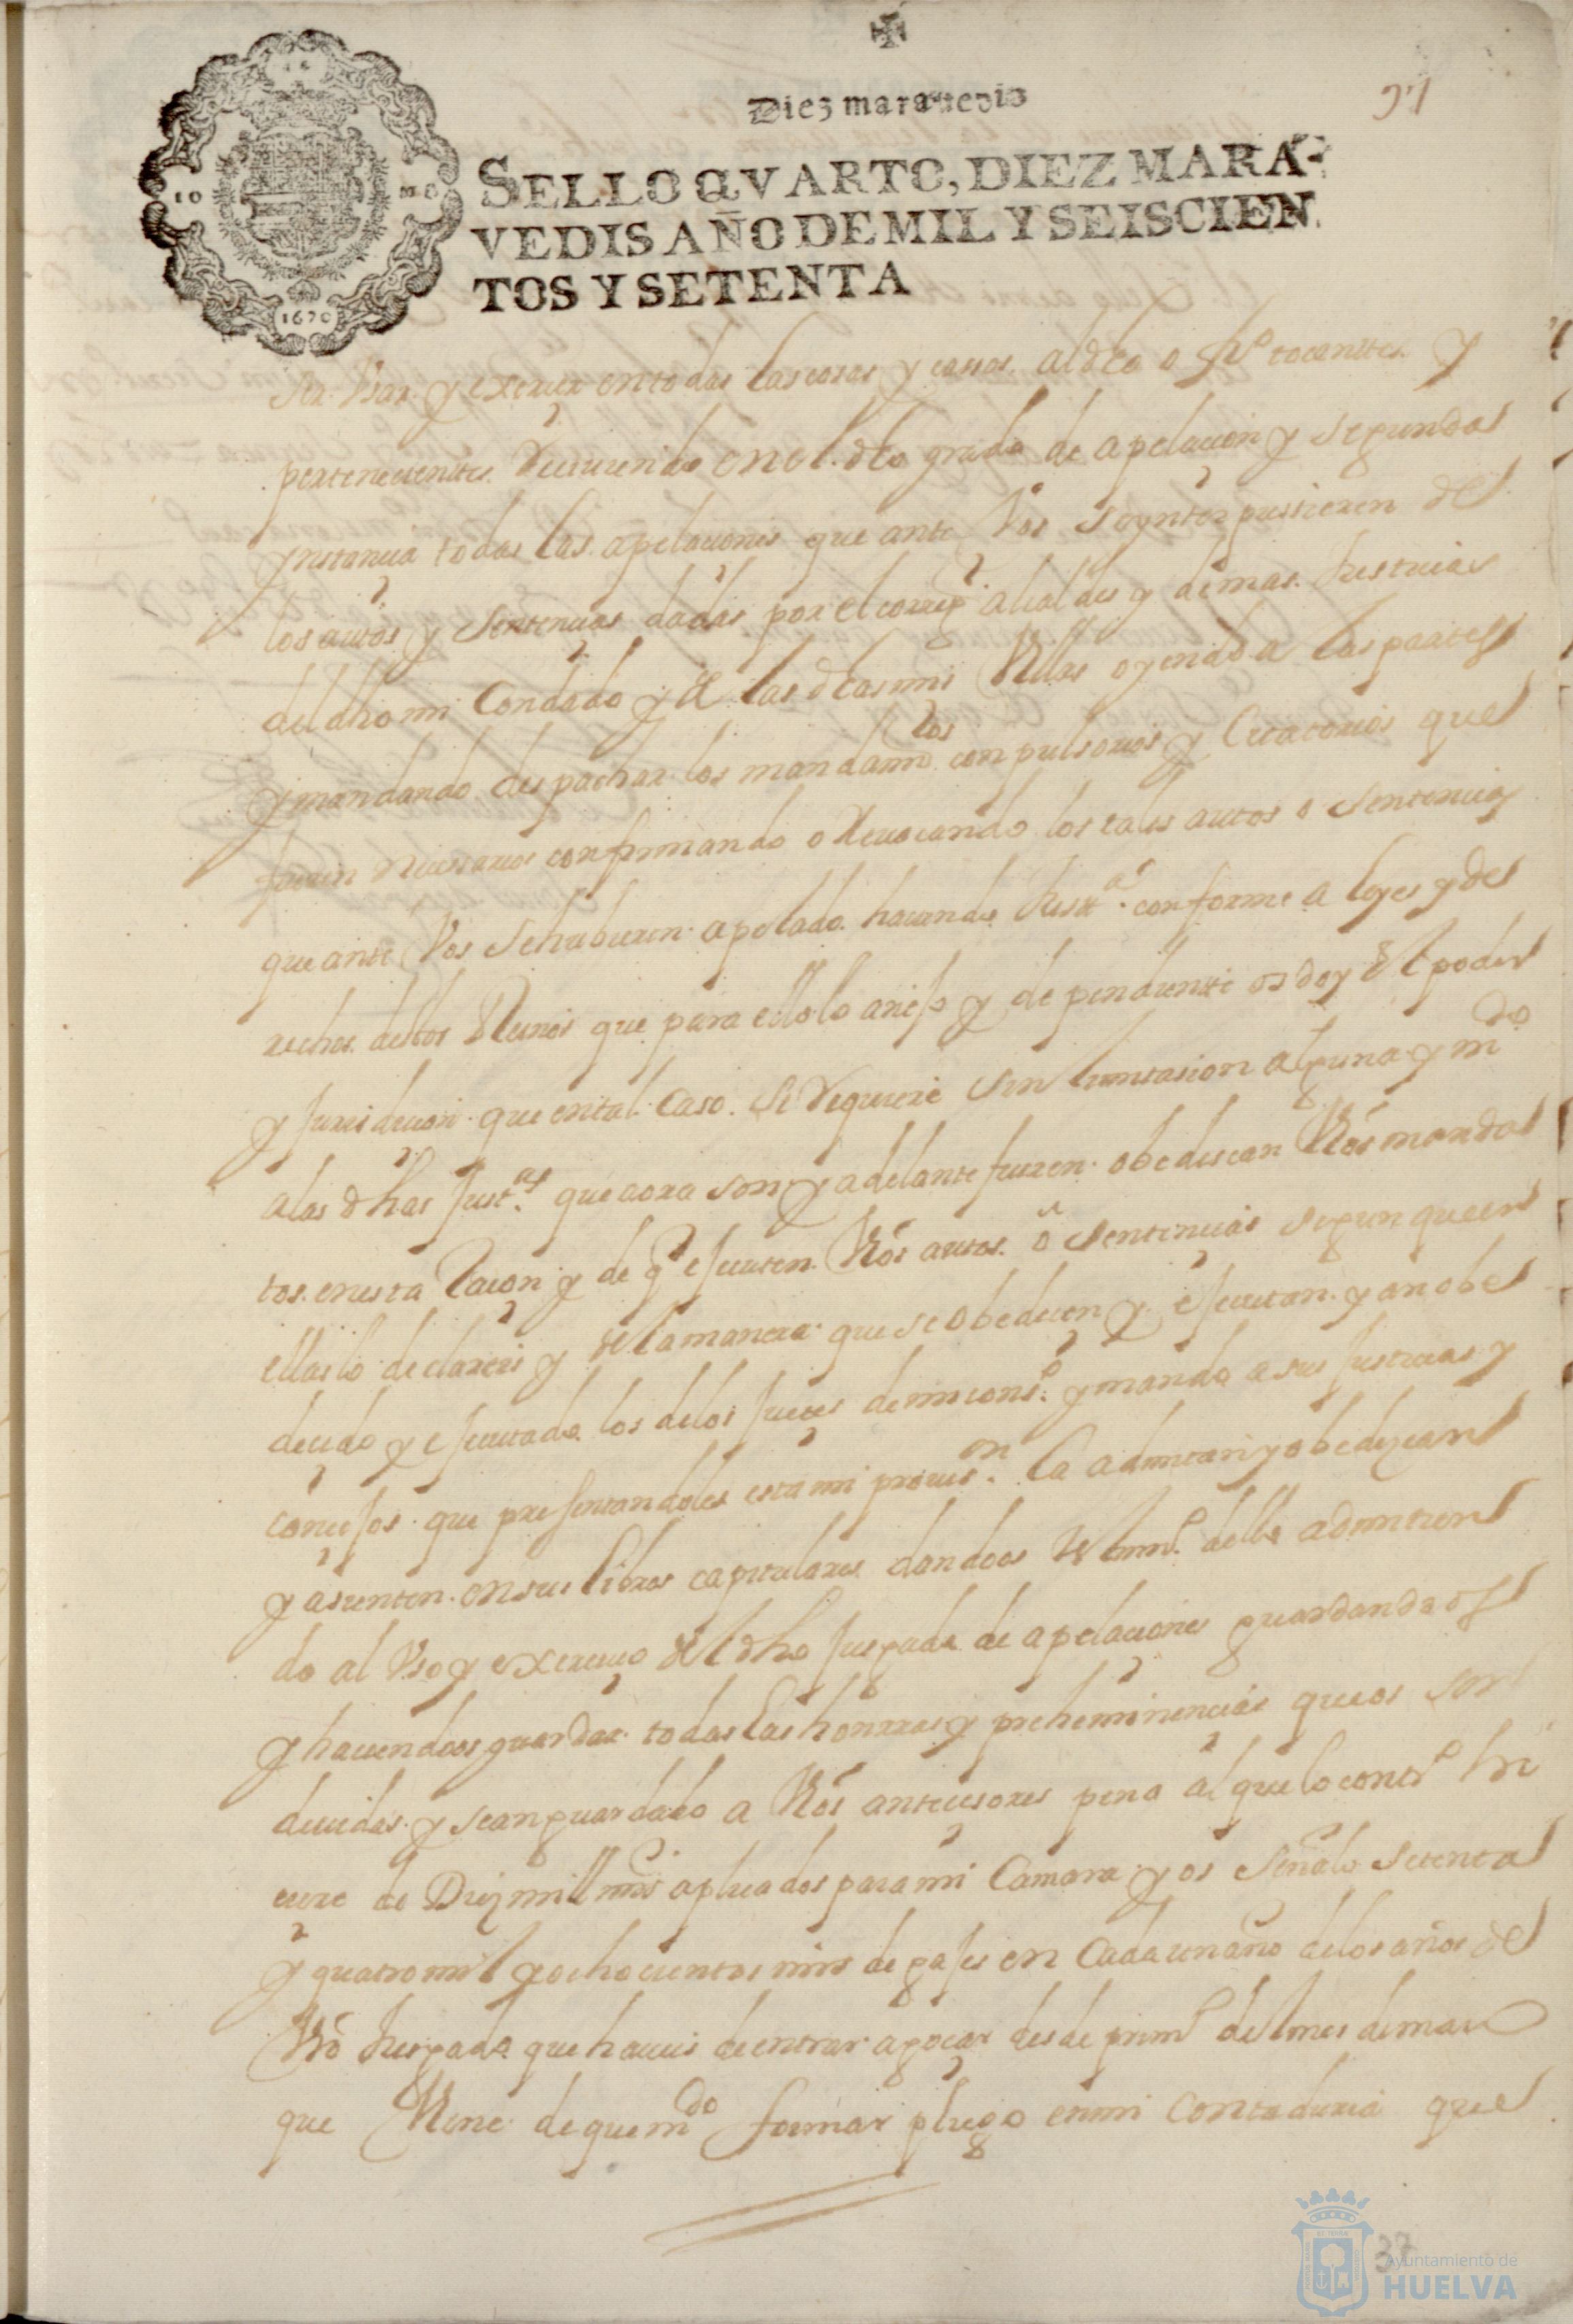 Diez maravedis
37
SELLO QVARTO, DIEZ MARA-
VEDIS AÑO DE MIL Y SEISCIEN
TOS Y SETENTA
10
1670
ser Vsar y exercer en todas las cosas y casos al dho ofiº tocantes y
pertenecientes Reciuiendo en el dho grado de apelacion y segunda
ynstancia todas las apelaciones que ante Vos se ynterpusieren de
los autos y sentencias dadas por el correxr alcaldes y demas Justicias
del dho mi Condado y de las dhas mis Villas oyendo a las partes
y mandando despachar los mandamtos conpulsorios y Citatorios que
fueren necesarios confirmando o Reuocando los tales autos o sentencias
que ante Vos se hubieren apelado haciendo Justa conforme a leyes y de
rechos destos Reinos que para ello lo anejo y dependiente os doy el poder
y Jurisdicion que en tal Caso se Requiere sin limitasion alguna y mdo
a las dhas Justas que aora son y adelante fueren obedescan Vros manda
tos en esta Racon y de qe ejecuten Vros autos o sentencias segun que en
ellas lo declareis y de la manera que se obedecen y ejecutan y an obe
decido y ejecutado los de los Jueces de mi consº y mando a sus Justicias y
concejos que presentandoles esta mi prouison la admitan y obedezcan
y asienten en sus libros capitulares dandoos testimº della admitien
do al Vso y exercicio del dho Jusgado de apelaciones guardandoos
y haciendoos guardar todas las honrras y preheminencias que os son
deuidas y se an guardado a Vros antecesores pena al que lo contrº hi
ciere de Diez mill mrs aplicados para mi Camara y os señalo setenta
y quatro mil y ochocientos mrs de gajes en Cada un año de los años de
Vro Jusgado que haueis de entrar a gocar desde primº del mes de março
que Viene de que mdo formar pliego en mi Contaduria que
37
Ayuntamiento de
HUELVA